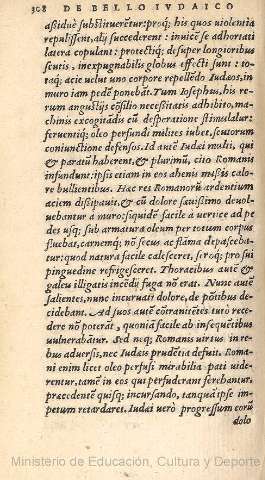 308 DE BELLO IVDAICO
aßiduè substitueretur: proq; his quos uiolentia
repulissent, alij succederent: inuicẽ se adhortati
latera copulant: protectiq; desuper longioribus
scutis, inexpugnabilis globus effecti sunt: to-
taq; acie uelut uno corpore repellẽdo Iudæos, in
muro iam pedẽ ponebãt. Tum Iosephus, his re-
rum angustijs cõsilio necessitatis adhibito, ma-
chinis excogitãdis cũ desperatione stimulatur:
feruentiq; oleo perfundi milites iubet, scutorum
coniunctione defensos. Id autẽ Iudæi multi, qui
& paratũ haberent, & plurimũ, cito Romanis
infundunt: ipsis etiam in eos ahenis maßis calo-
re bullientibus. Hac res Romanorũ ardentium
aciem dißipauit, & cũ dolore sæuißimo deuol-
uebantur à muro: siquidẽ facile à uertice ad pe
des usq; sub armatura oleum per totum corpus
fluebat, carnemq; nõ secus ac flãma depascebа-
tur: quod natura facile calesceret, serοq; pro sui
pinguedine refrigesceret. Thoracibus autẽ &
galeis illigatis incẽdij fuga nõ erat. Nunc autẽ
salientes, nunc incuruati dolore, de põtibus de-
cidebant. Ad suos autẽ cõtranitẽtes tutò rece-
dere nõ poterãt, quoniã facile ab insequẽtibus
uulnerabãtur. Sed neq; Romanis uirtus in re-
bus aduersis, nec Iudæis prudẽtia defuit. Roma-
ni enim licet oleo perfusi mirabilia pati uide-
rentur, tamẽ in eos qui perfuderant ferebantur,
præcedentẽ quisq; incursando, tanquã ipse im-
petum retardaret. Iudæi uerò progressum eorũ
dolo
Ministerio de Educación, Cultura y Deporte